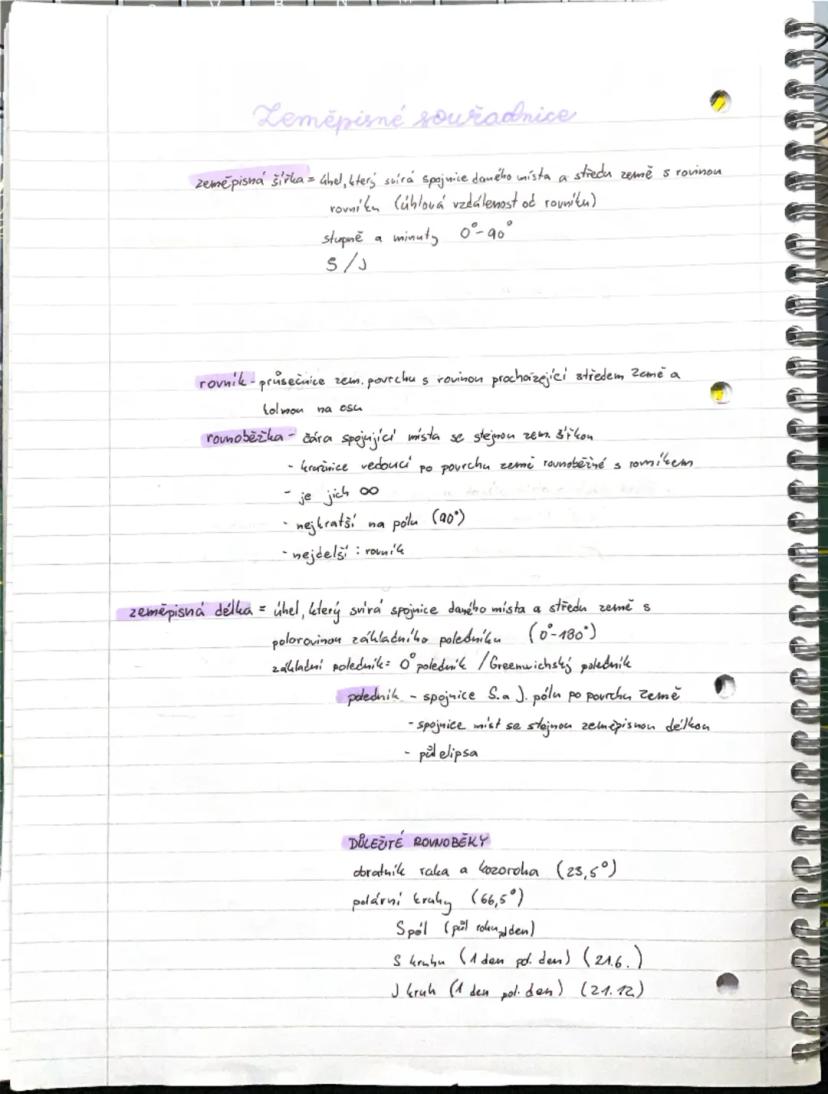 Zeměpisné souřadnice
zeměpisná šířka = úhel, který svírá spojnice daného místa a středu země s rovinou
rovníku (úhlová vzdálenost od rovníku)
stupně a minuty 0°-90°
S/J
rovník - průsečnice zem. povrchu s rovinou procházející středem Země a
kolmou na osu
rovnoběžka - čára spojující místa se stejnou zem. šířkou
- kružnice vedoucí po povrchu země rovnoběžně s rovníkem
- je jich ∞
- nejkratší na pólu (90°)
- nejdelší : rovník
zeměpisná délka = úhel, který svírá spojnice daného místa a středu země s
polorovinou základního poledníku (0°-180°)
základní poledník = 0° poledník / Greenwichský poledník
poledník - spojnice S. a J. pólu po povrchu Země
- spojnice míst se stejnou zeměpisnou délkou
- půl elipsa
DŮLEŽITÉ ROVNOBĚKY
obratník raka a kozoroha (23,5°)
polární kruhy (66,5°)
S pól (půl roku den)
S kruhu (1 den pol. den) (21.6.)
J kruh (1 den pol. den) (21.12)